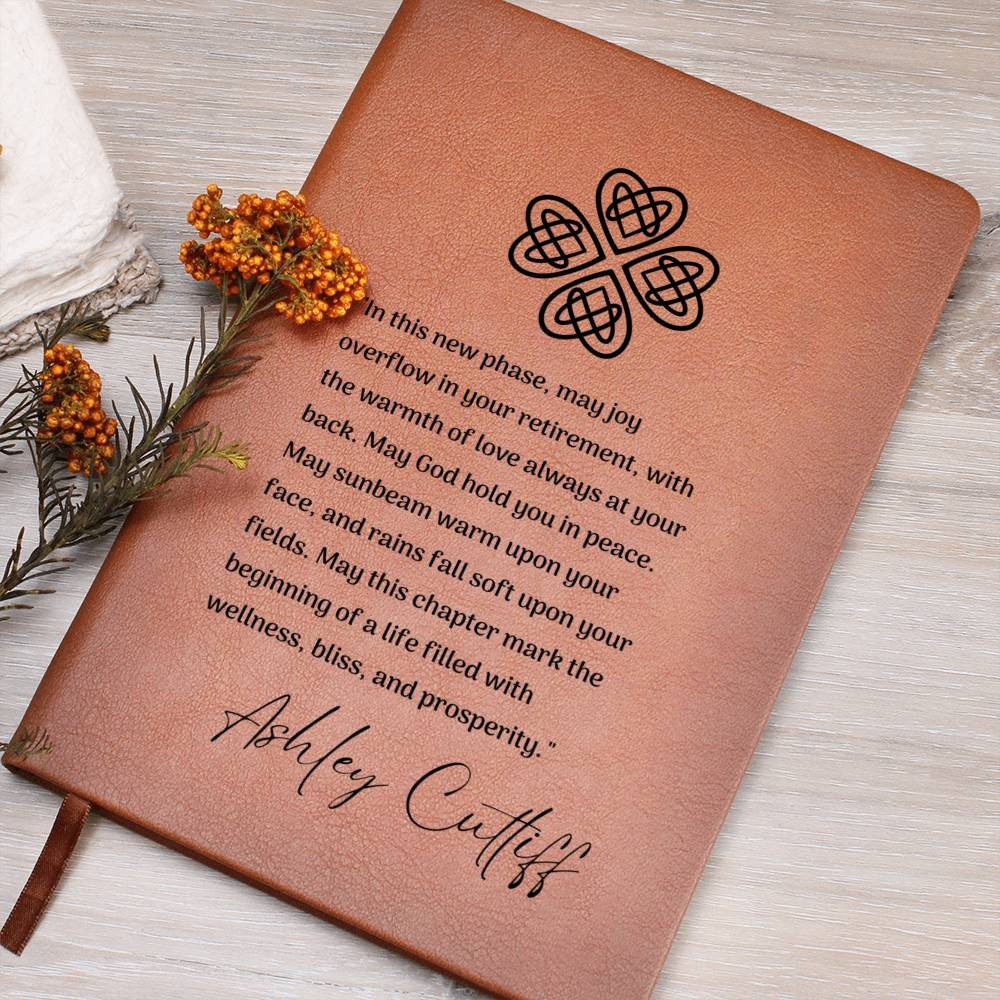 "In this new phase, may joy
overflow in your retirement, with
the warmth of love always at your
back. May God hold you in peace.
May sunbeam warm upon your
face, and rains fall soft upon your
fields. May this chapter mark the
beginning of a life filled with
wellness, bliss, and prosperity. "
Ashley Cutliff